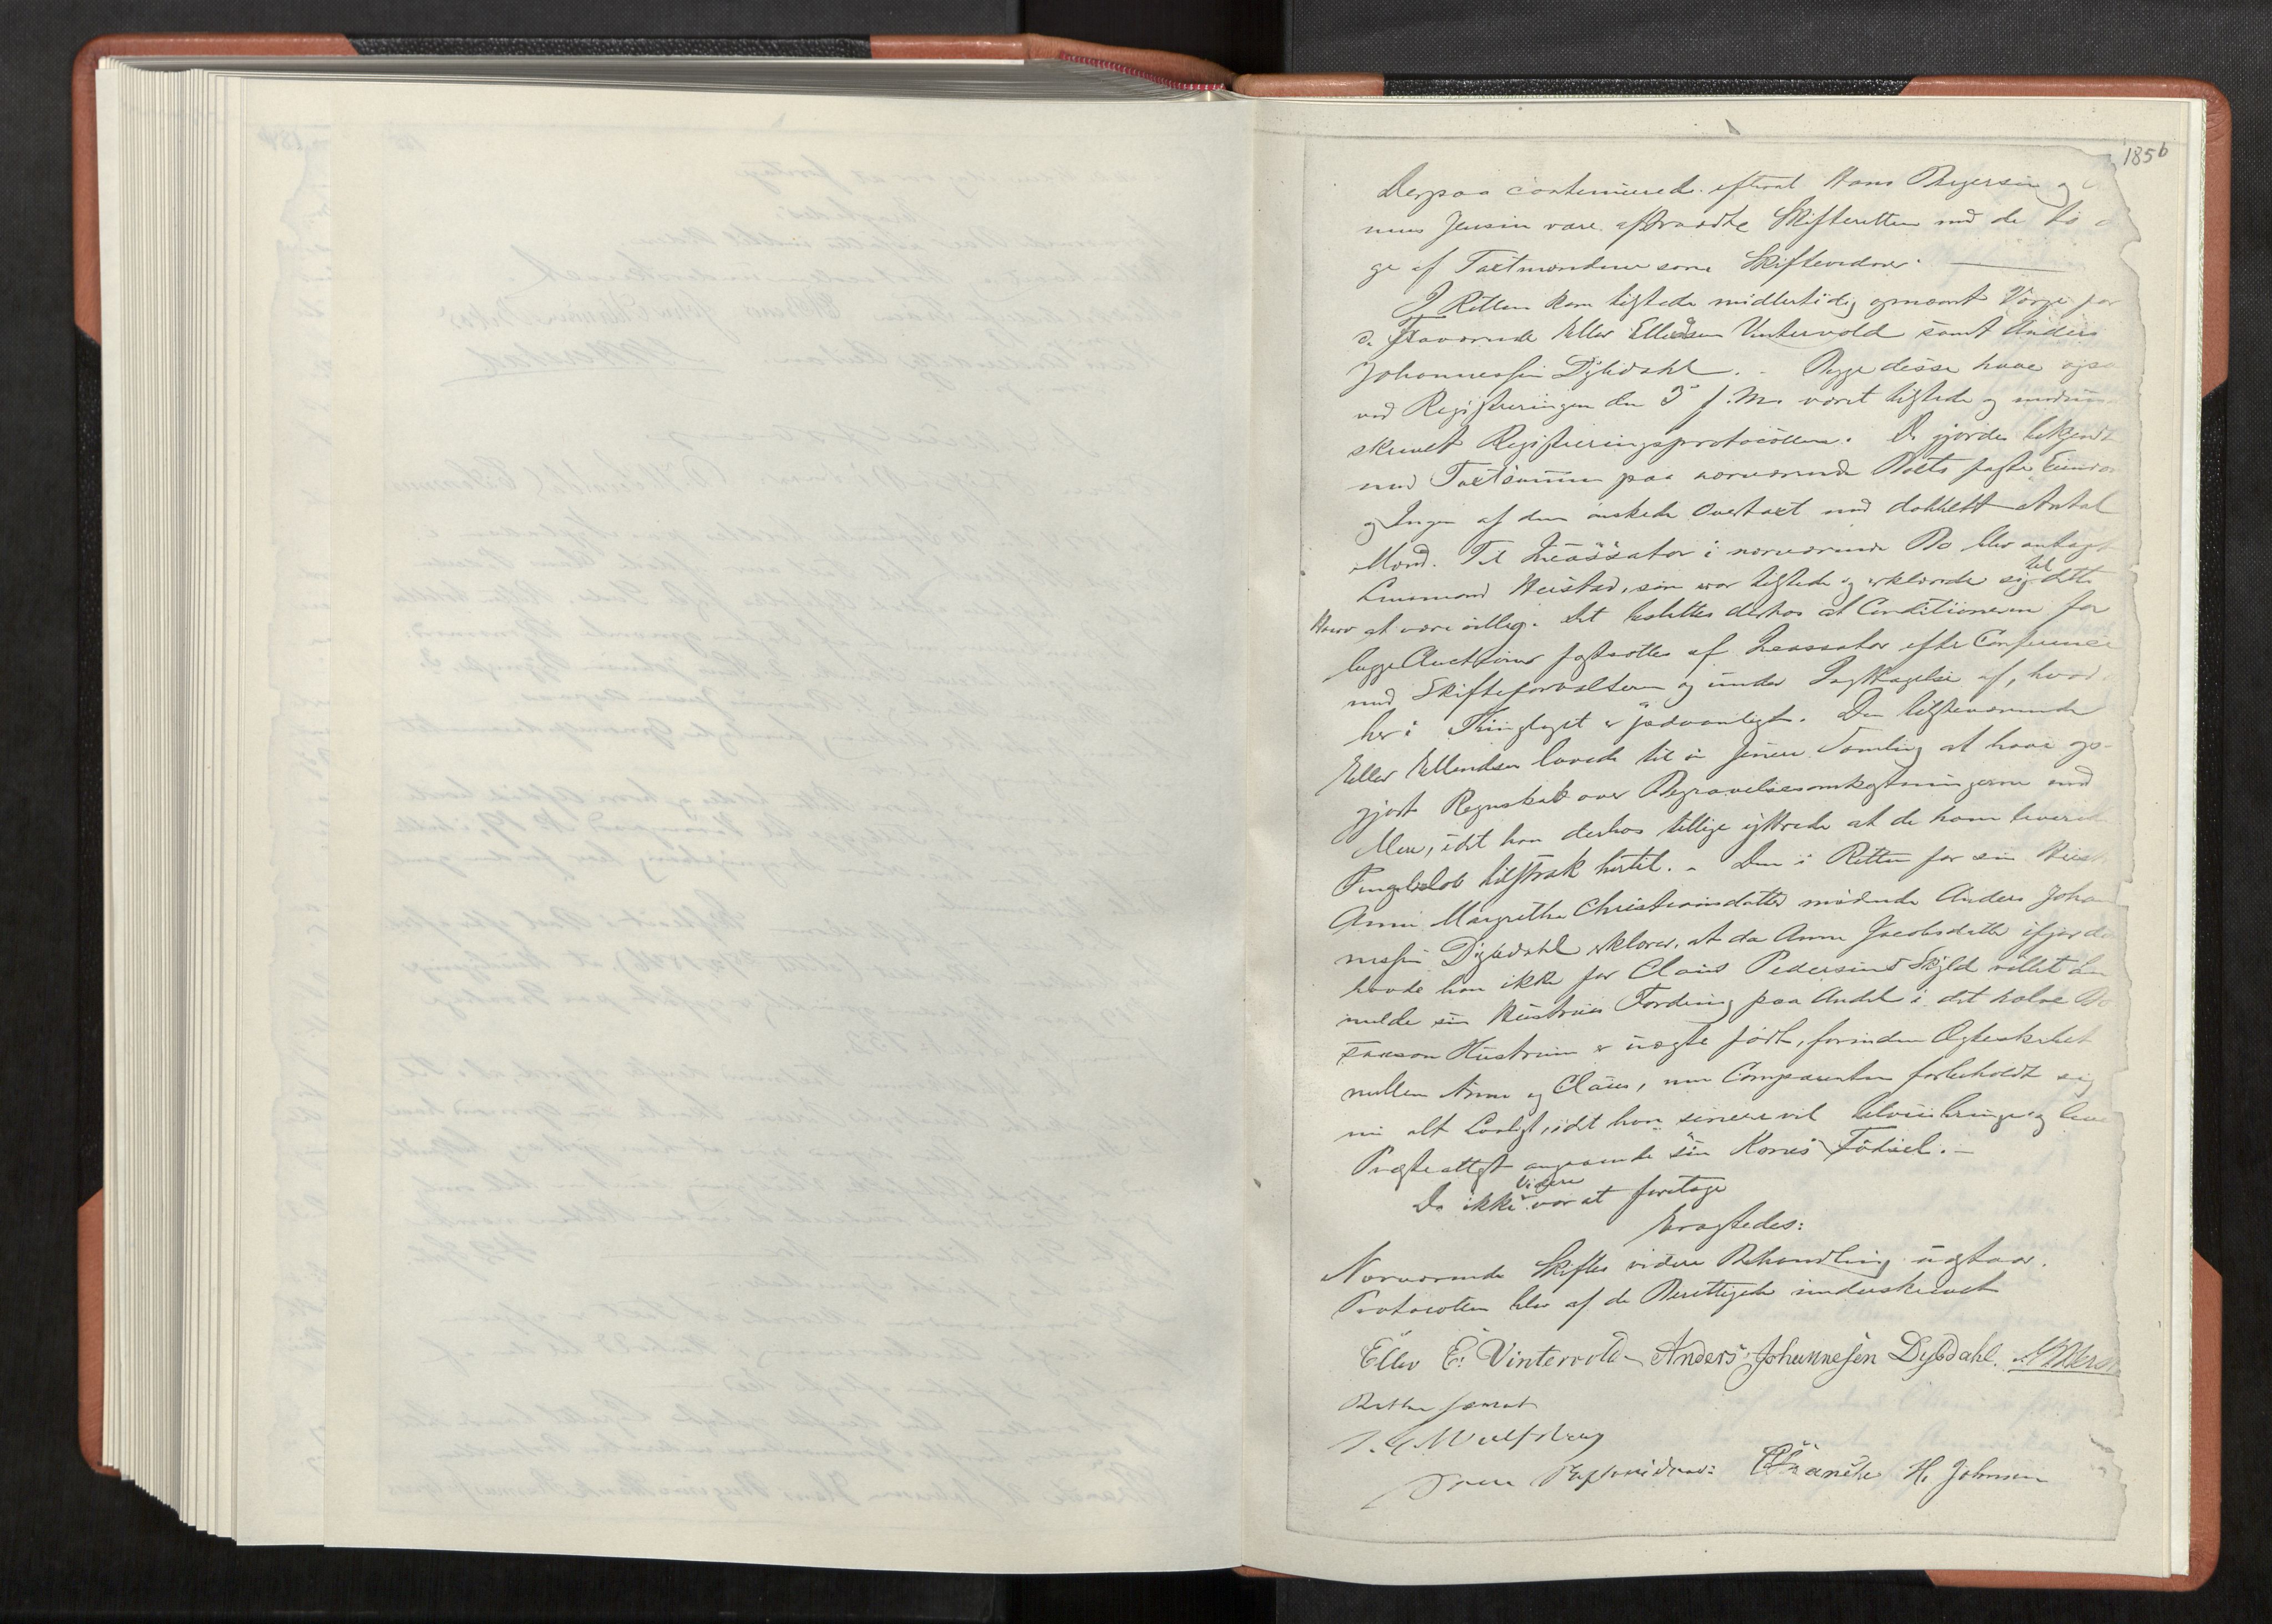 185b
Derpaa contenuerede efterat Hans Byersen og
mus Jensen vare aftraadte Skifteretten med de to
ge af Taxtmændene som Skiftevidner.
I Retten kom tilstede midlertidig opnævnt Værge for
d. Fraværende Ellev Ellevsen Vintervold samt Anders
Johannessen Dybdahl. - Begge disse have ogsaa
ved Registreringen den 3 f. M. været tilstede og medun
skrevet Registreringsprotocollen. De gjordes bekjendt
med Taxtsummen paa nærværende Boets faste Eiendom
og Ingen af dem ønskede Overtaxt med dobbelt Antal
Mænd. Til Incassator i nærværende Bo blev antaget
Lensmand Weistad, som var tilstede og erklærede sig til dette
Hverv at være villig. Det besluttes derhos at Conditionerne for
begge Auctioner fastsættes af Incassator efter Conference
med Skifteforvalteren og under Iagttagelse af, hvad
her i Thinglaget er sædvanligt. Den tilstedeværende
Ellev Ellendsen lovede til en senere Samling at have op-
gjort Regnskab over Begravelsesomkostningerne med
Mere, idet han derhos tillige yttrede at de ham leverede
Pengebeløb tilstrak hertil. - Den i Retten for sin Hust
Anne Margrethe Christiansdatter mødende Anders Johan
nessen Dybdahl erklærer, at da Anne Jacobsdatter ifjor dø
havde han ikke for Claus Pedersens Skyld villet an
melde sin Hustrues Fordring paa Andel i det halve Bo
saasom Hustruen er uægte født, forinden Ægteskabet
mellem Anne og Claus, men Comparenten forbeholdt sig
nu alt Lovligt, idet han senere vil tilveiebringe og leve
Præsteattest angaaende sin Kones Fødsel. -
Da ikke videre var at foretage
Eragtedes:
Nærværende Skiftes videre Behandling udstaar.
Protocollen blev af de Berettigede underskrevet
Ellev E. Vintervold Anders Johannesen Dybdahl.
Retten hævet
Wulfsberg
Som Skiftevidner: H. Johnsen